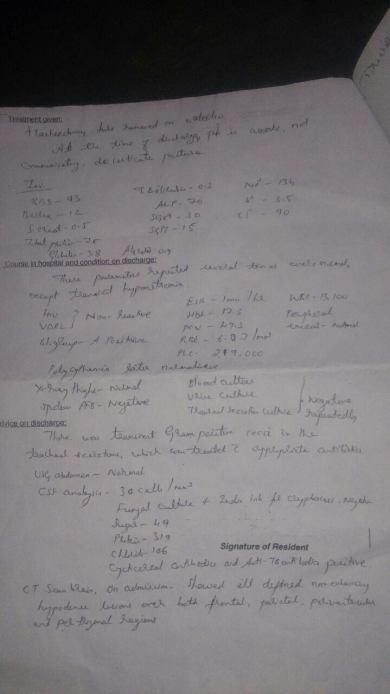 Treatment given:
Tracheostomy tube removed on
At the time of discharge, pt is awake, not
communicating, decorticate posture
Inv
RBS - 93
T. Bilirubin - 0.2
Na+ - 134
Urea - 12
ALP - 70
K+ - 3.5
S. creat - 0.5
SGOT - 30
Cl- - 90
Total protein - 7.5
SGPT - 15
Globulin - 3.8
Albumin
Course in hospital and condition on discharge:
These parameters repeated several times were normal,
except transient hyponatremia
HIV
VDRL
Non-Reactive
ESR - 1mm / hr
WBC - 13,100
HB% - 12.3
Peripheral
Bl. group - A Positive
smear - normal
PLC - 217,000
X-ray - Normal
Blood culture
Urine culture
Negative
Sputum AFB - Negative
Tracheal secretion culture
Repeatedly
dvice on discharge:
There was transient Gram positive cocci in the
tracheal secretions, which was treated c appropriate antibiotics
USG abdomen - Normal
CSF analysis - 30 cells / mm3
Fungal culture + India Ink for cryptococcus - negative
Sugar - 49
Protein - 319
Chloride - 106
Signature of Resident
Cysticercal antibodies and Anti-TB antibodies positive
CT Scan Brain, on admission - Showed ill defined non enhancing
hypodense lesions over both frontal, parietal, periventricular
and regions